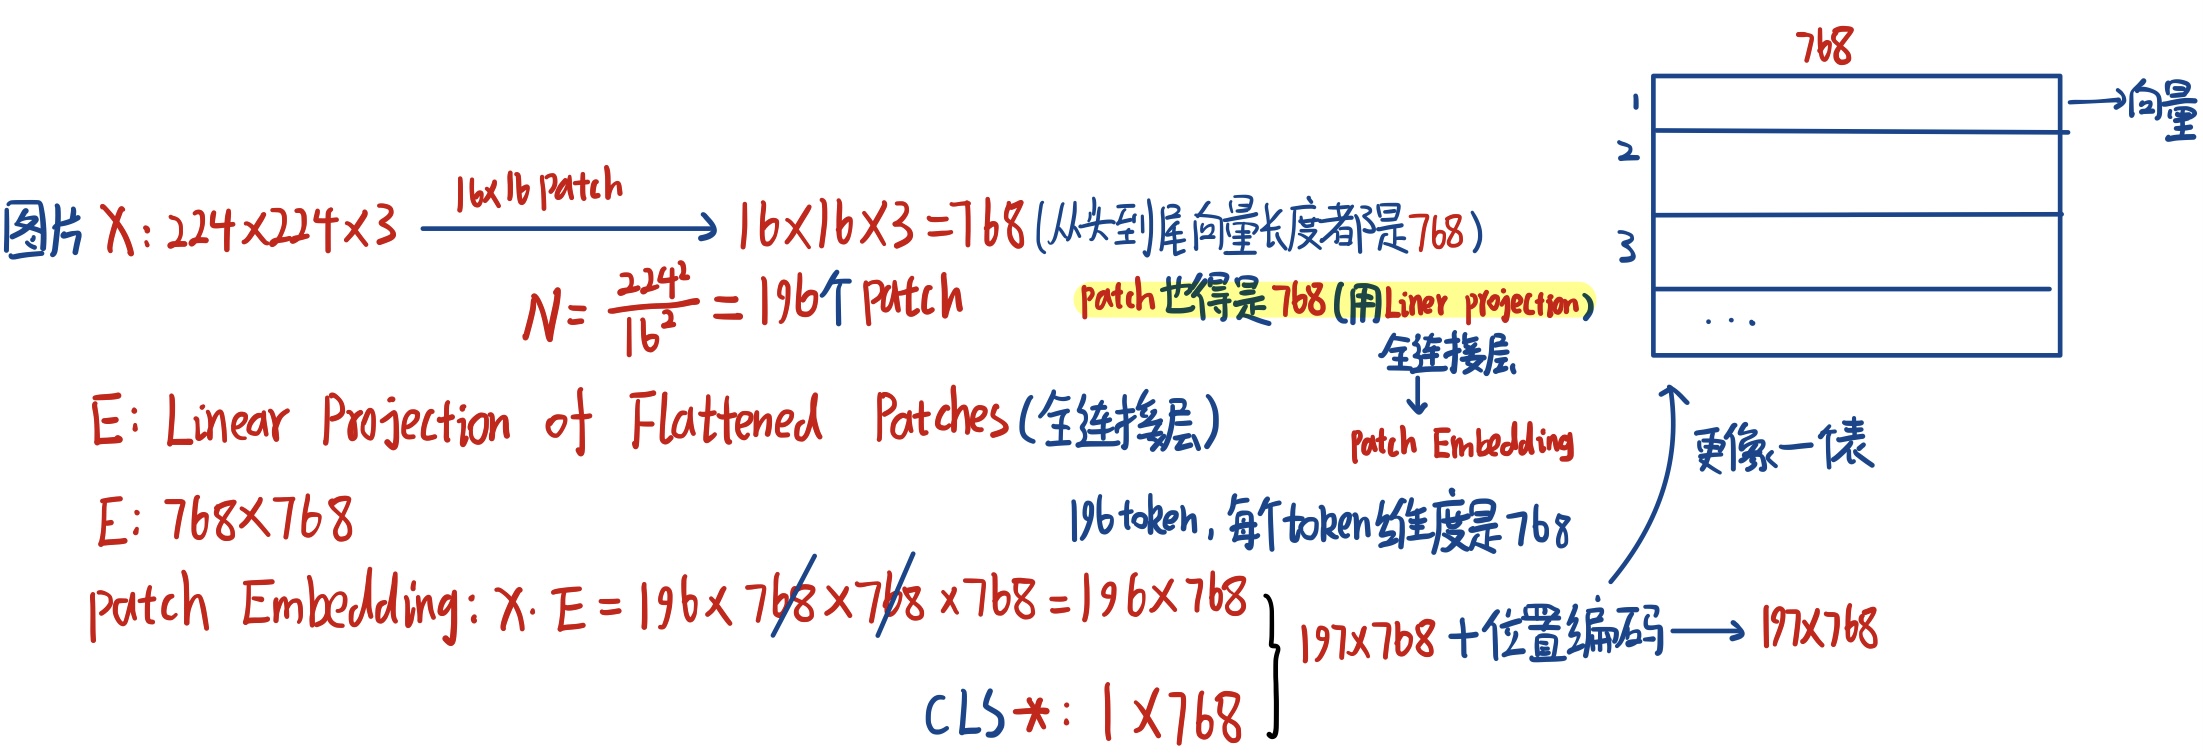 768
1 →向量
2
3
...
16x16 patch
图片 X: 224x224x3 → 16x16x3=768(从头到尾向量长度都是768)
N= 224²/16² = 196个patch
patch也得是768(用Liner projection)
全连接层
↓
patch Embedding
更像一张表
E: Linear Projection of Flattened Patches(全连接层)
E: 768x768
196token, 每个token维度是768
patch Embedding: X. E = 196x768x768x768=196x768
CLS*: 1x768
197x768+位置编码→197x768